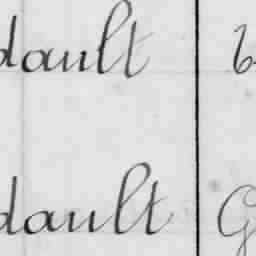 dault b
dault G